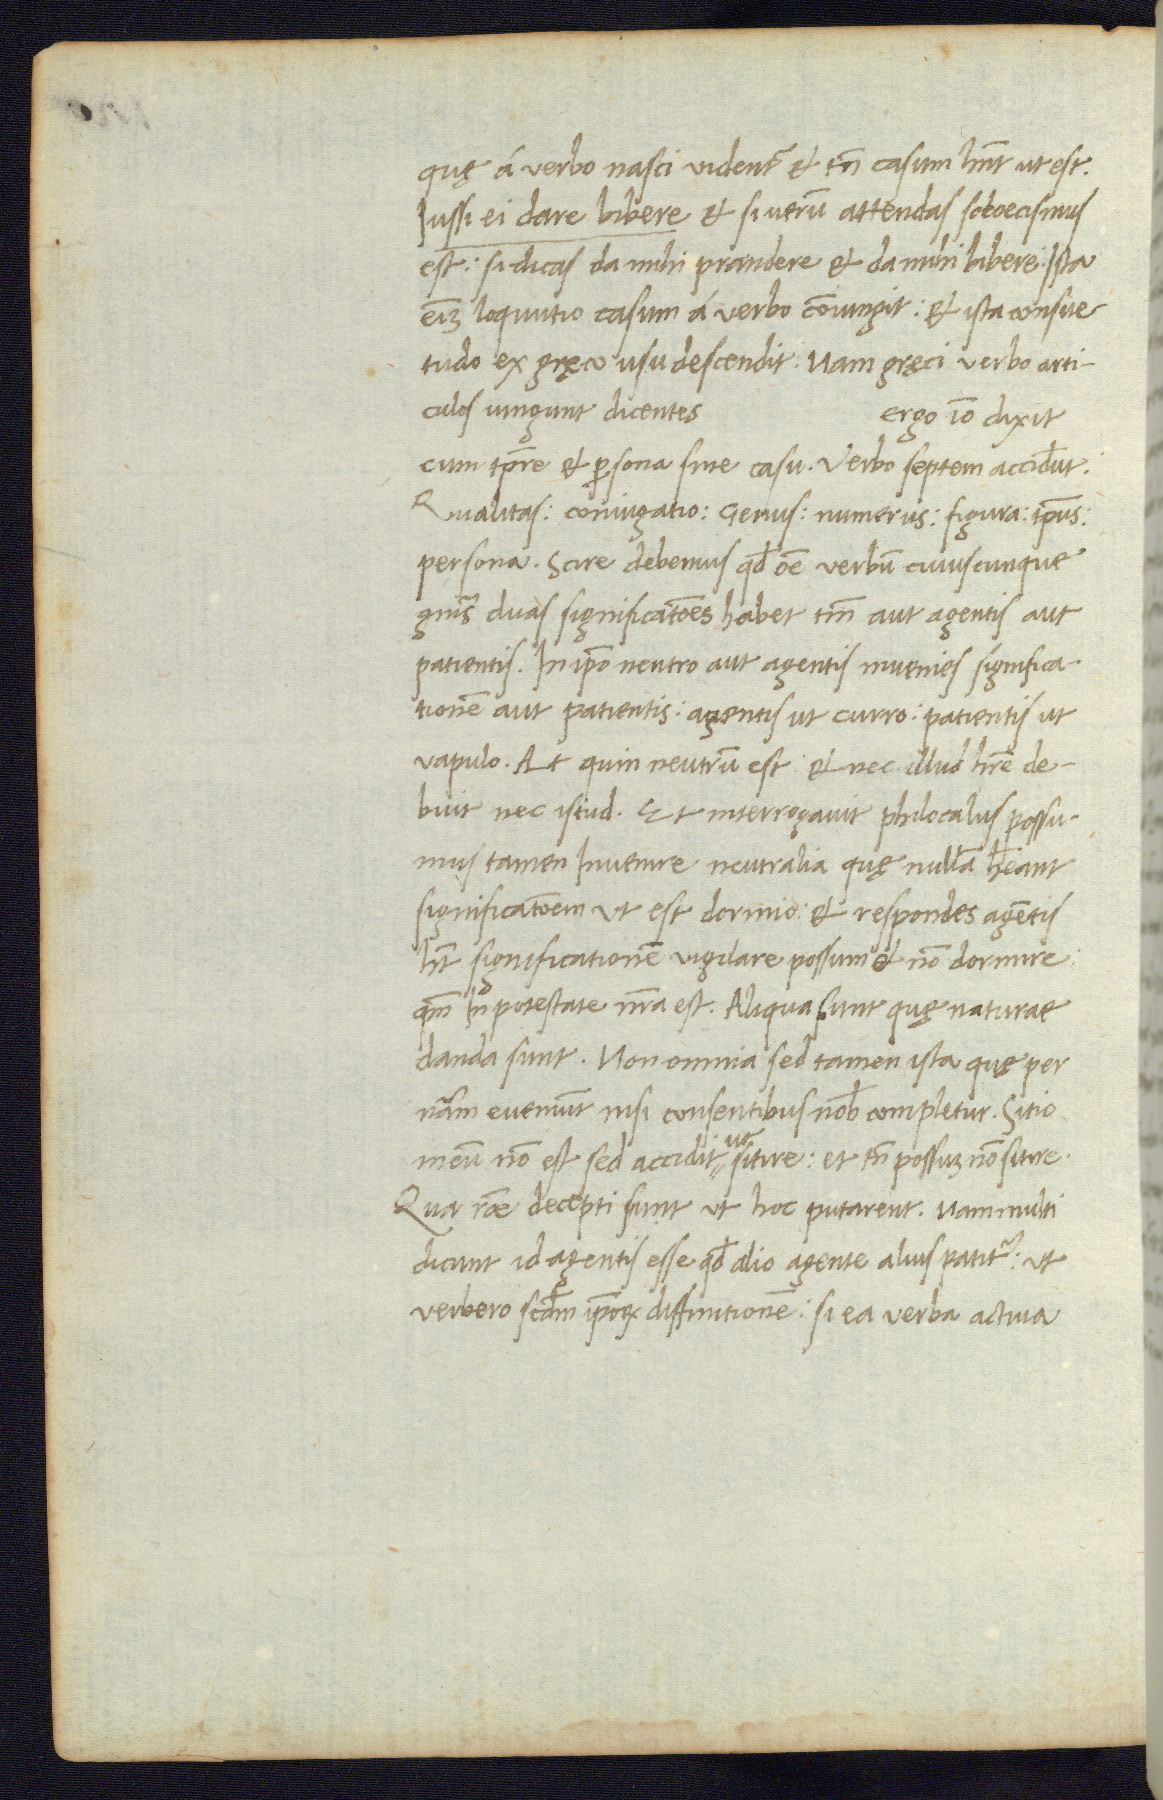 quę á verbo nasci videnť & tñ casum hñt ut est.
Jussi ei dare bibere & si uerū attendas soloecismus
est: si dicas da mihi prandere & da mihi bibere: Ista
eīꝫ loquutio casum á verbo cōiungit: & ista consue
tudo ex gręco usu descendit. Nam gręci verbo arti-
culos iungunt dicentes ergo iō dixit
cum tpr̄e & ꝑsona sine casu. Verbo septem accidūt.
Qualitas: coniugatio: Genus: numerus: figura: tp̄us:
persona. Scire debemus qd̄ oē verbū cuiuscunque
gn̄is duas significatōes habet tm̄ aut agentis aut
patientis. In ip̄o neutro aut agentis inuenies significa-
tionē aut patientis: agentis ut curro: patientis ut
vapulo. At quin neutrū est: & nec illud hr̄e de-
buit nec istud. Et interrogauit philocalus possu-
mus tamen Inuenire neutralia quę nullā hēant
significatōem ut est dormio: & respondes agētis
hñt significationē vigilare possum & nō dormire:
qm̄ In potestate nr̄a est. Aliqua sunt quę naturae
danda sunt. Non omnia sed tamen ista quę per
nām eueniūt nisi consentibus nob̄ completur. Sitio
meū nō est sed accidit ut sitire: et tñ possuꝫ nō sitire.
Qua rōe decepti sunt ut hoc putarent. Nam multi
dicunt id agentis esse qd̄ alio agente alius patiť: ut
verbero scd̄m ip̄oꝝ diffinitionē: si ea verba actiua